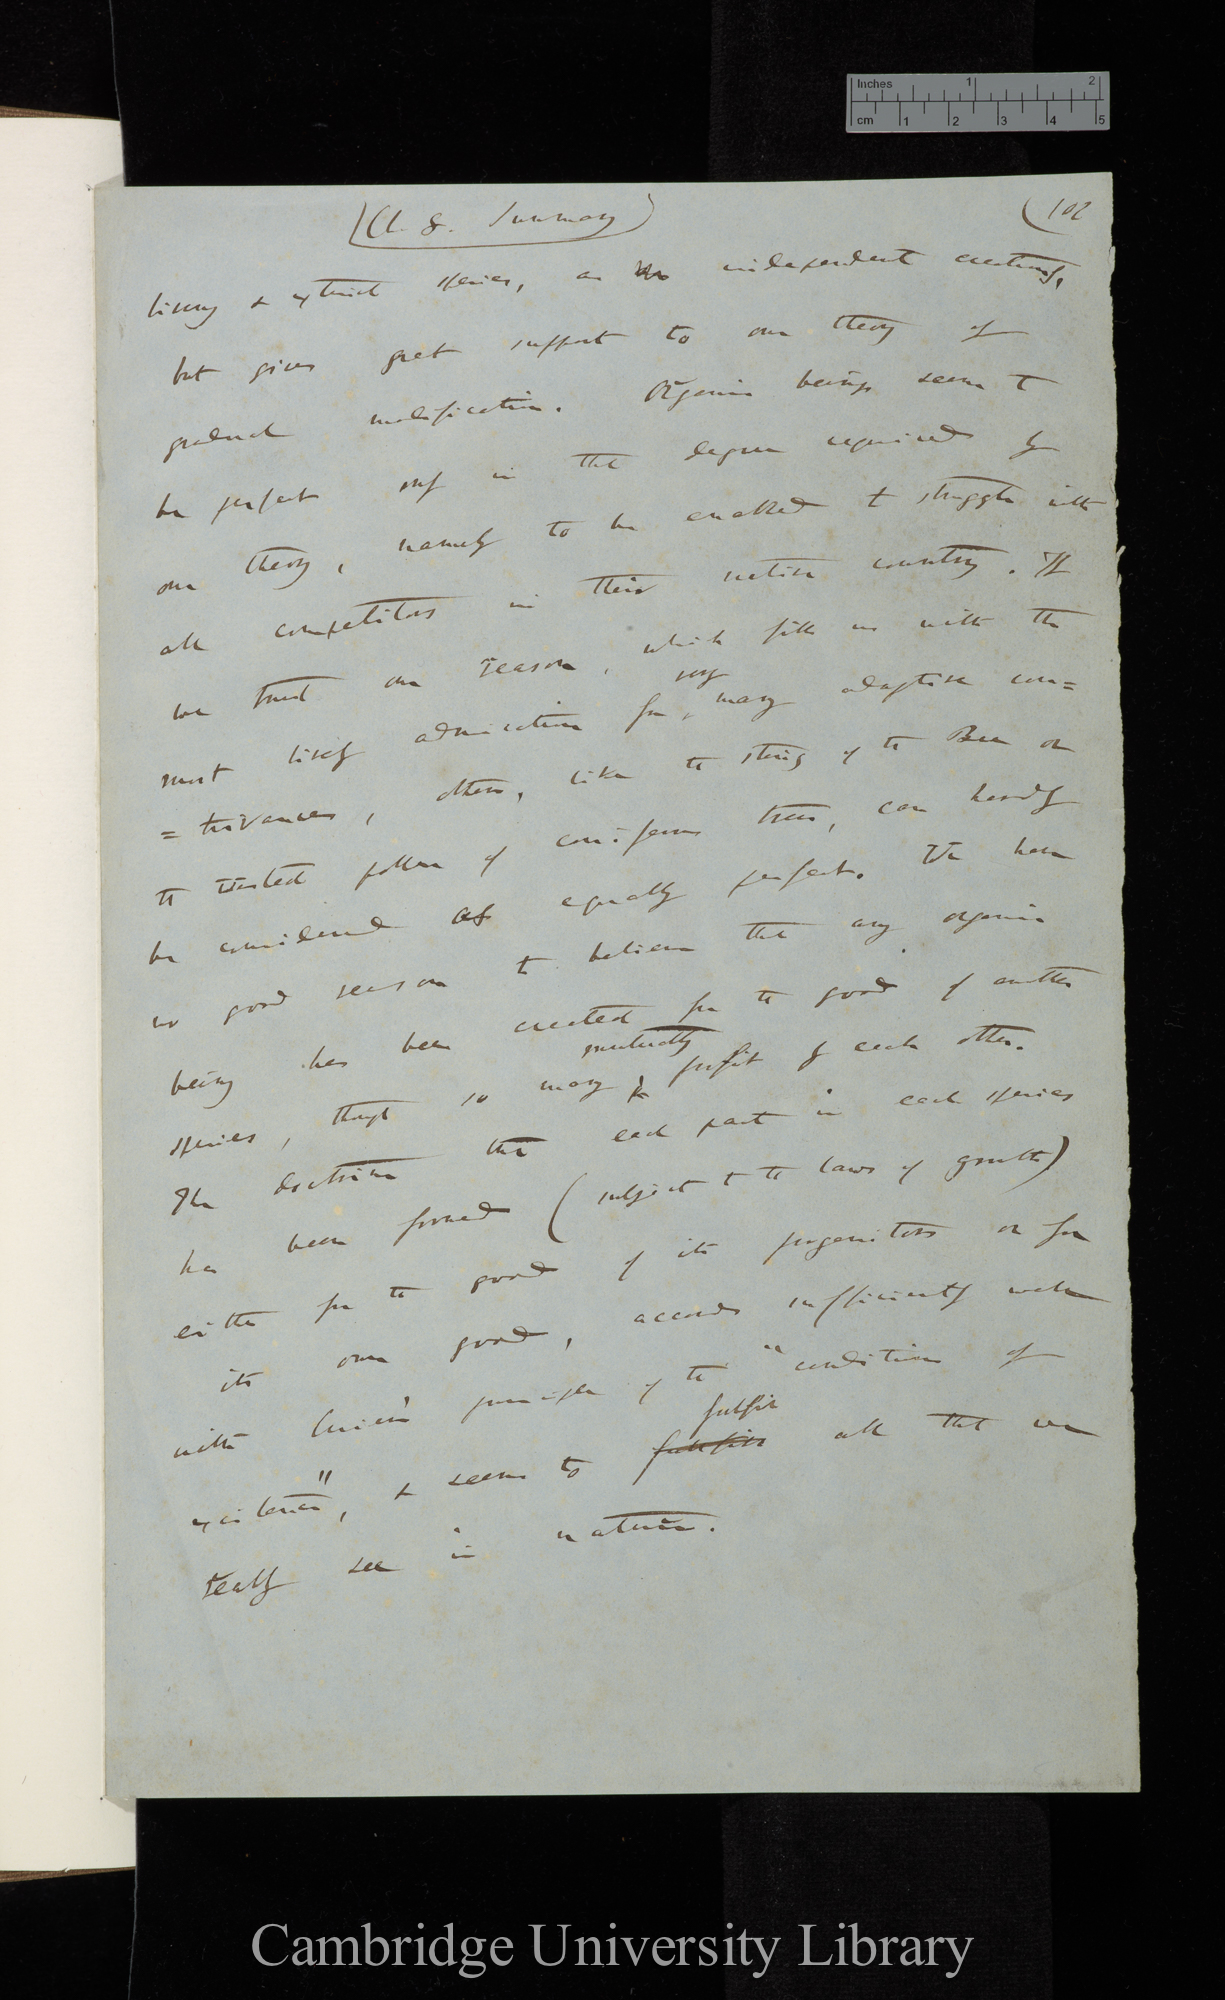 Inches 1 2
cm 1 2 3 4 5
(Ch. 8. Summary) (102
living & extinct species, as independent creations,
but gives great support to our theory of
gradual modification. Organic beings seem to
be perfect only in the degree required by
our theory, namely to be enabled to struggle with
all competitors in their native country. If
we trust our reason, which fills us with the
very
most lively admiration for, many adaptive con=
=trivances, others, like the sting of the Bee or
the wasted pollen of coniferous trees, can hardly
be considered as equally perfect. We have
no good reason to believe that any organic
being has been created for the good of another
mutually
species, though so many profit of each other.
The doctrine that each part in each species
has been formed (subject to the laws of growth)
either for the good of its progenitors or for
its own good, accords sufficiently well
with Cuvier's principle of the "conditions of
fulfil
existence", & seems to fulfils all that we
really see in nature.
Cambridge University Library